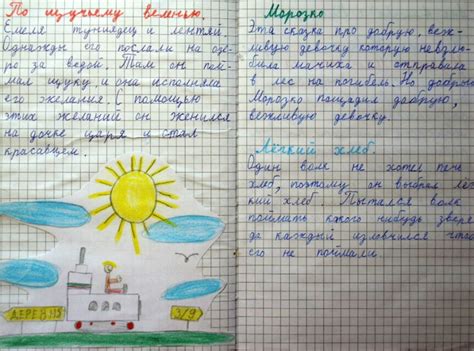 По щучьему веленью.
Емеля тунеядец и лентяй.
Однажды его послали на озе-
ро за водой. Там он пой-
мал щуку, и она исполняла
его желания. С помощью
этих желаний он женился
на дочке царя и стал
красавцем.
ДЕРЕВНЯ
3/9
Морозко
Эта сказка про добрую, веж-
ливую девочку которую невзлю-
била мачиха и отправила
в лес на погибель. Но добрый
Морозко пощадил добрую,
вежливую девочку.
Лёгкий хлеб.
Один волк не хотел печь
хлеб, поэтому он выбрал лёг
кий хлеб. Пытался волк
поймать какого нибудь звере
да каждый изловчился чтоб
его не поймали.